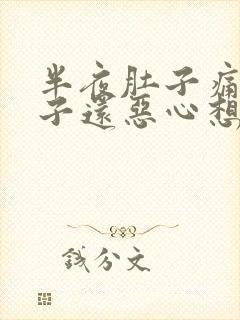 半夜肚子痛
子還惡心想
錢分文